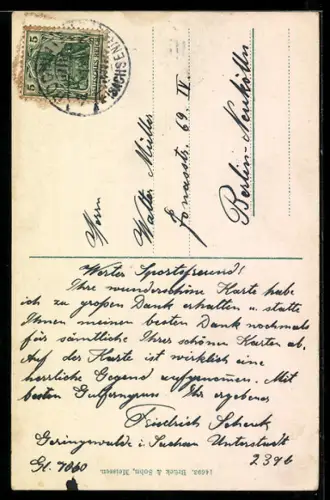 5 5
SACHSEN
Herrn
Walter Müller
Jonasstr. 69 IV
Berlin-Neukölln
Werter Sportsfreund!
Ihre wunderschöne Karte habe
ich zu großen Dank erhalten u. statte
Ihnen meinen besten Dank nochmals
für sämtliche Ihrer schönen Karten ab.
Auf der Karte ist wirklich eine
herrliche Gegend aufgenommen. Mit
besten Ihr ergebener
Friedrich Schenk
Geringswalde i. Sachsen Unterstadt
Gl. 7060 2396
14693. Brück & Sohn, Meissen.